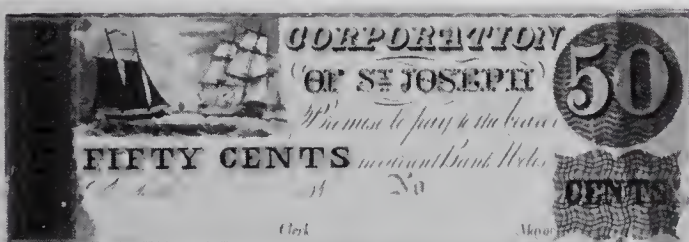 CORPORATION
OF ST JOSEPH
50
Promise to pay to the bearer
FIFTY CENTS in current Bank Notes
No
CENTS
Clerk
Mayor